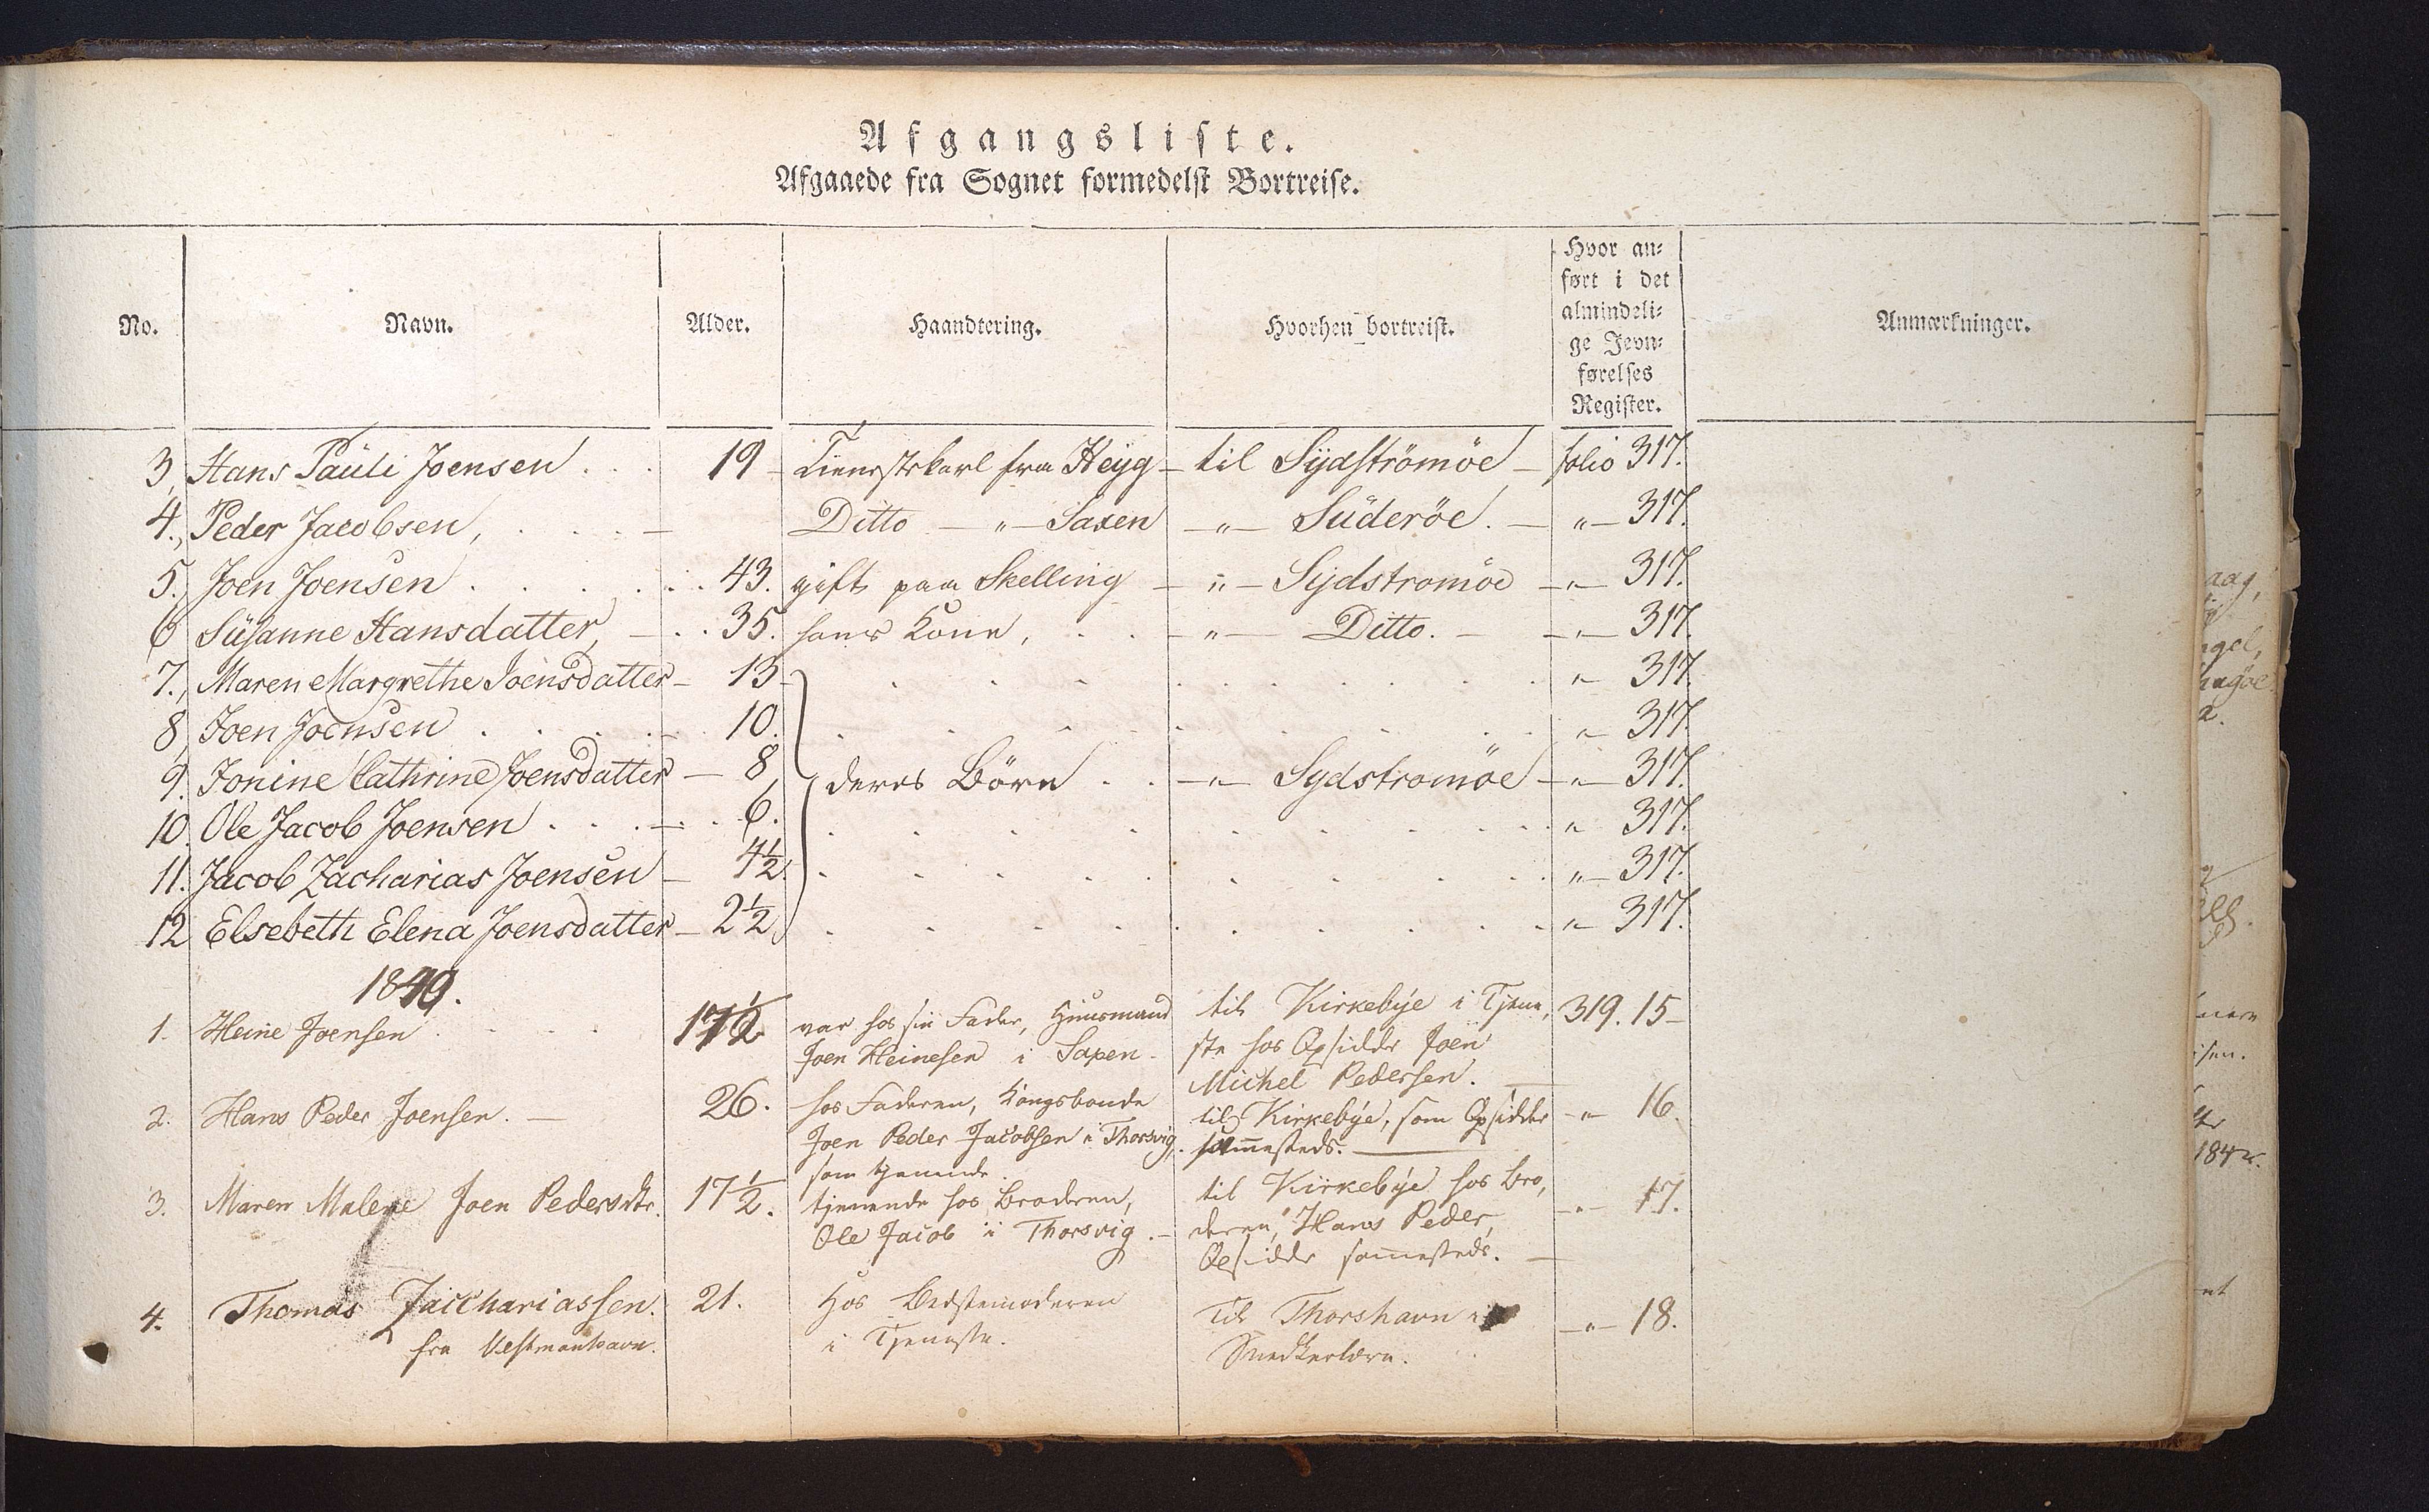 Afgangsliste.
Afgaaede fra Sognet formedelst Bortreise.
No. Navn. Alder. Haandtering. Hvorhen bortreist. Hvor an=
ført i det
almindeli=
ge Jevn=
førelses
Register. Anmærkninger.
3, Hans Pauli Joensen . . . 19 - Tienestekarl fra Heyg - til Sydströmöe - folio 317.
4., Peder Jacobsen, . . . - Ditto - " - Saxen - " - Suderöe. - " - 317.
5., Joen Joensen . . . . . 43. gift paa Skelling - " - Sydstromöe - " - 317.
6 Susanne Hansdatter, - . . 35. hans Kone, . . - " - Ditto. - - " - 317.
7., Maren Margrethe Joensdatter - 13 - " 317.
8, Joen Joensen . . . . . 10. " 317.
9. Jonine Cathrine Joensdatter - 8, deres Börn . . - " - Sydstromöe - " - 317.
10. Ole Jacob Joensen . . . - . 6. " 317.
11. Jacob Zacharias Joensen - 4½. " - 317.
12 Elsebeth Elena Joensdatter - 2½ " - 317.
1849.
1. Heine Joensen . . . . 17½ var hos sin Fader, Huusmand til Kirkebye i Tjene, 319. 15 -
Joen Heinesen i Saxen - ste hos Opsidder Joen
Michel Pedersen.
2. Hans Peder Joensen. - 26. hos Faderen, Kongsbonde til Kirkebye, som Opsidder - " - 16.
Joen Peder Jacobsen i Thorsvig, sammesteds.
som tjenende.
3. Maren Malene Joen Pedersdtr. 17½. tjenende hos Broderen, til Kirkebye hos Bro, - " - 17.
Ole Jacob i Thorsvig. - deren, Hans Peder,
Opsidder sammesteds. -
4. Thomas Zacchariassen. 21. Hos Bedstemoderen Til Thorshavn i - " - 18.
fra Vestmanhavn. i Tjeneste. Snedkerlære.